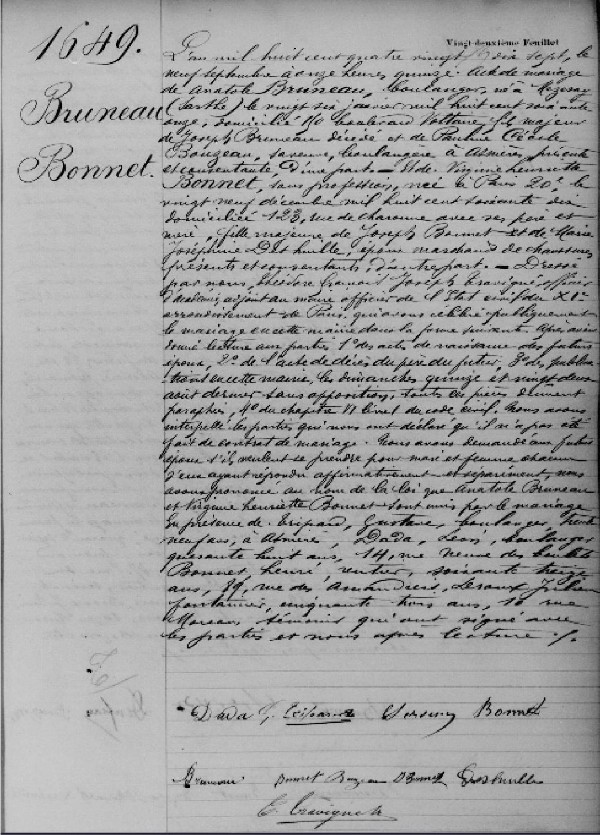 1649.
Bruneau
Bonnet.
Vingt-deuxième Feuillet
L'an mil huit cent quatre vingt dix sept, le
neuf septembre à onze heures quinze Acte de mariage
de Anatole Bruneau, boulanger, né à
(Sarthe) le vingt six janvier mil huit cent soixante
onze, domicilié 110 boulevard Voltaire, fils majeur
de Joseph Bruneau décédé et de Pauline Cécile
Bouzeau, sa veuve, boulangère à Asnières, présente
et consentante, d'une part. Et de Virginie henriette
Bonnet, sans profession, née à Paris 20e, le
vingt neuf décembre mil huit cent soixante dix
domiciliée 123, rue de charonne avec ses père et
mère, fille majeure de Joseph Bonnet et de Marie
Joséphine époux marchands de chaussures
présents et consentants, d'autre part. — Dressé
par nous, Joseph officier
d'académie, adjoint au maire officier de l'Etat civil du XIe
arrondissement de Paris, qui avons célébré publiquement
le mariage en cette mairie dans la forme suivante. Après avoir
donné lecture aux parties 1° des actes de naissance des futurs
époux, 2° de l'acte de décès du père du futur, 3° des publica
tions en cette mairie, les dimanches quinze et vingt deux
août dernier sans opposition, toutes les pièces dûment
paraphées, 4° du chapitre VI livre 1 du code civil. Nous avons
interpellé les parties qui nous ont déclaré qu'il n'a pas été
fait de contrat de mariage. Nous avons demandé aux futurs
époux s'ils veulent se prendre pour mari et femme chacun
d'eux ayant répondu affirmativement et séparément, nous
avons prononcé au nom de la loi que Anatole Bruneau
et Virginie henriette Bonnet sont unis par le mariage
En présence de: Gustave, boulanger, trente
neuf ans, à Asnières, Dada, Léon, boulanger
quarante huit ans, 14, rue
Bonnet, henri, rentier, soixante treize
ans, 89, rue des Amandiers, Leroux Julien
fontainier, cinquante trois ans, 16 rue
Moreau témoins qui ont signé avec
les parties et nous après lecture ./.
Dada Bonnet
Bruneau Bonnet Bouzeau Bonnet